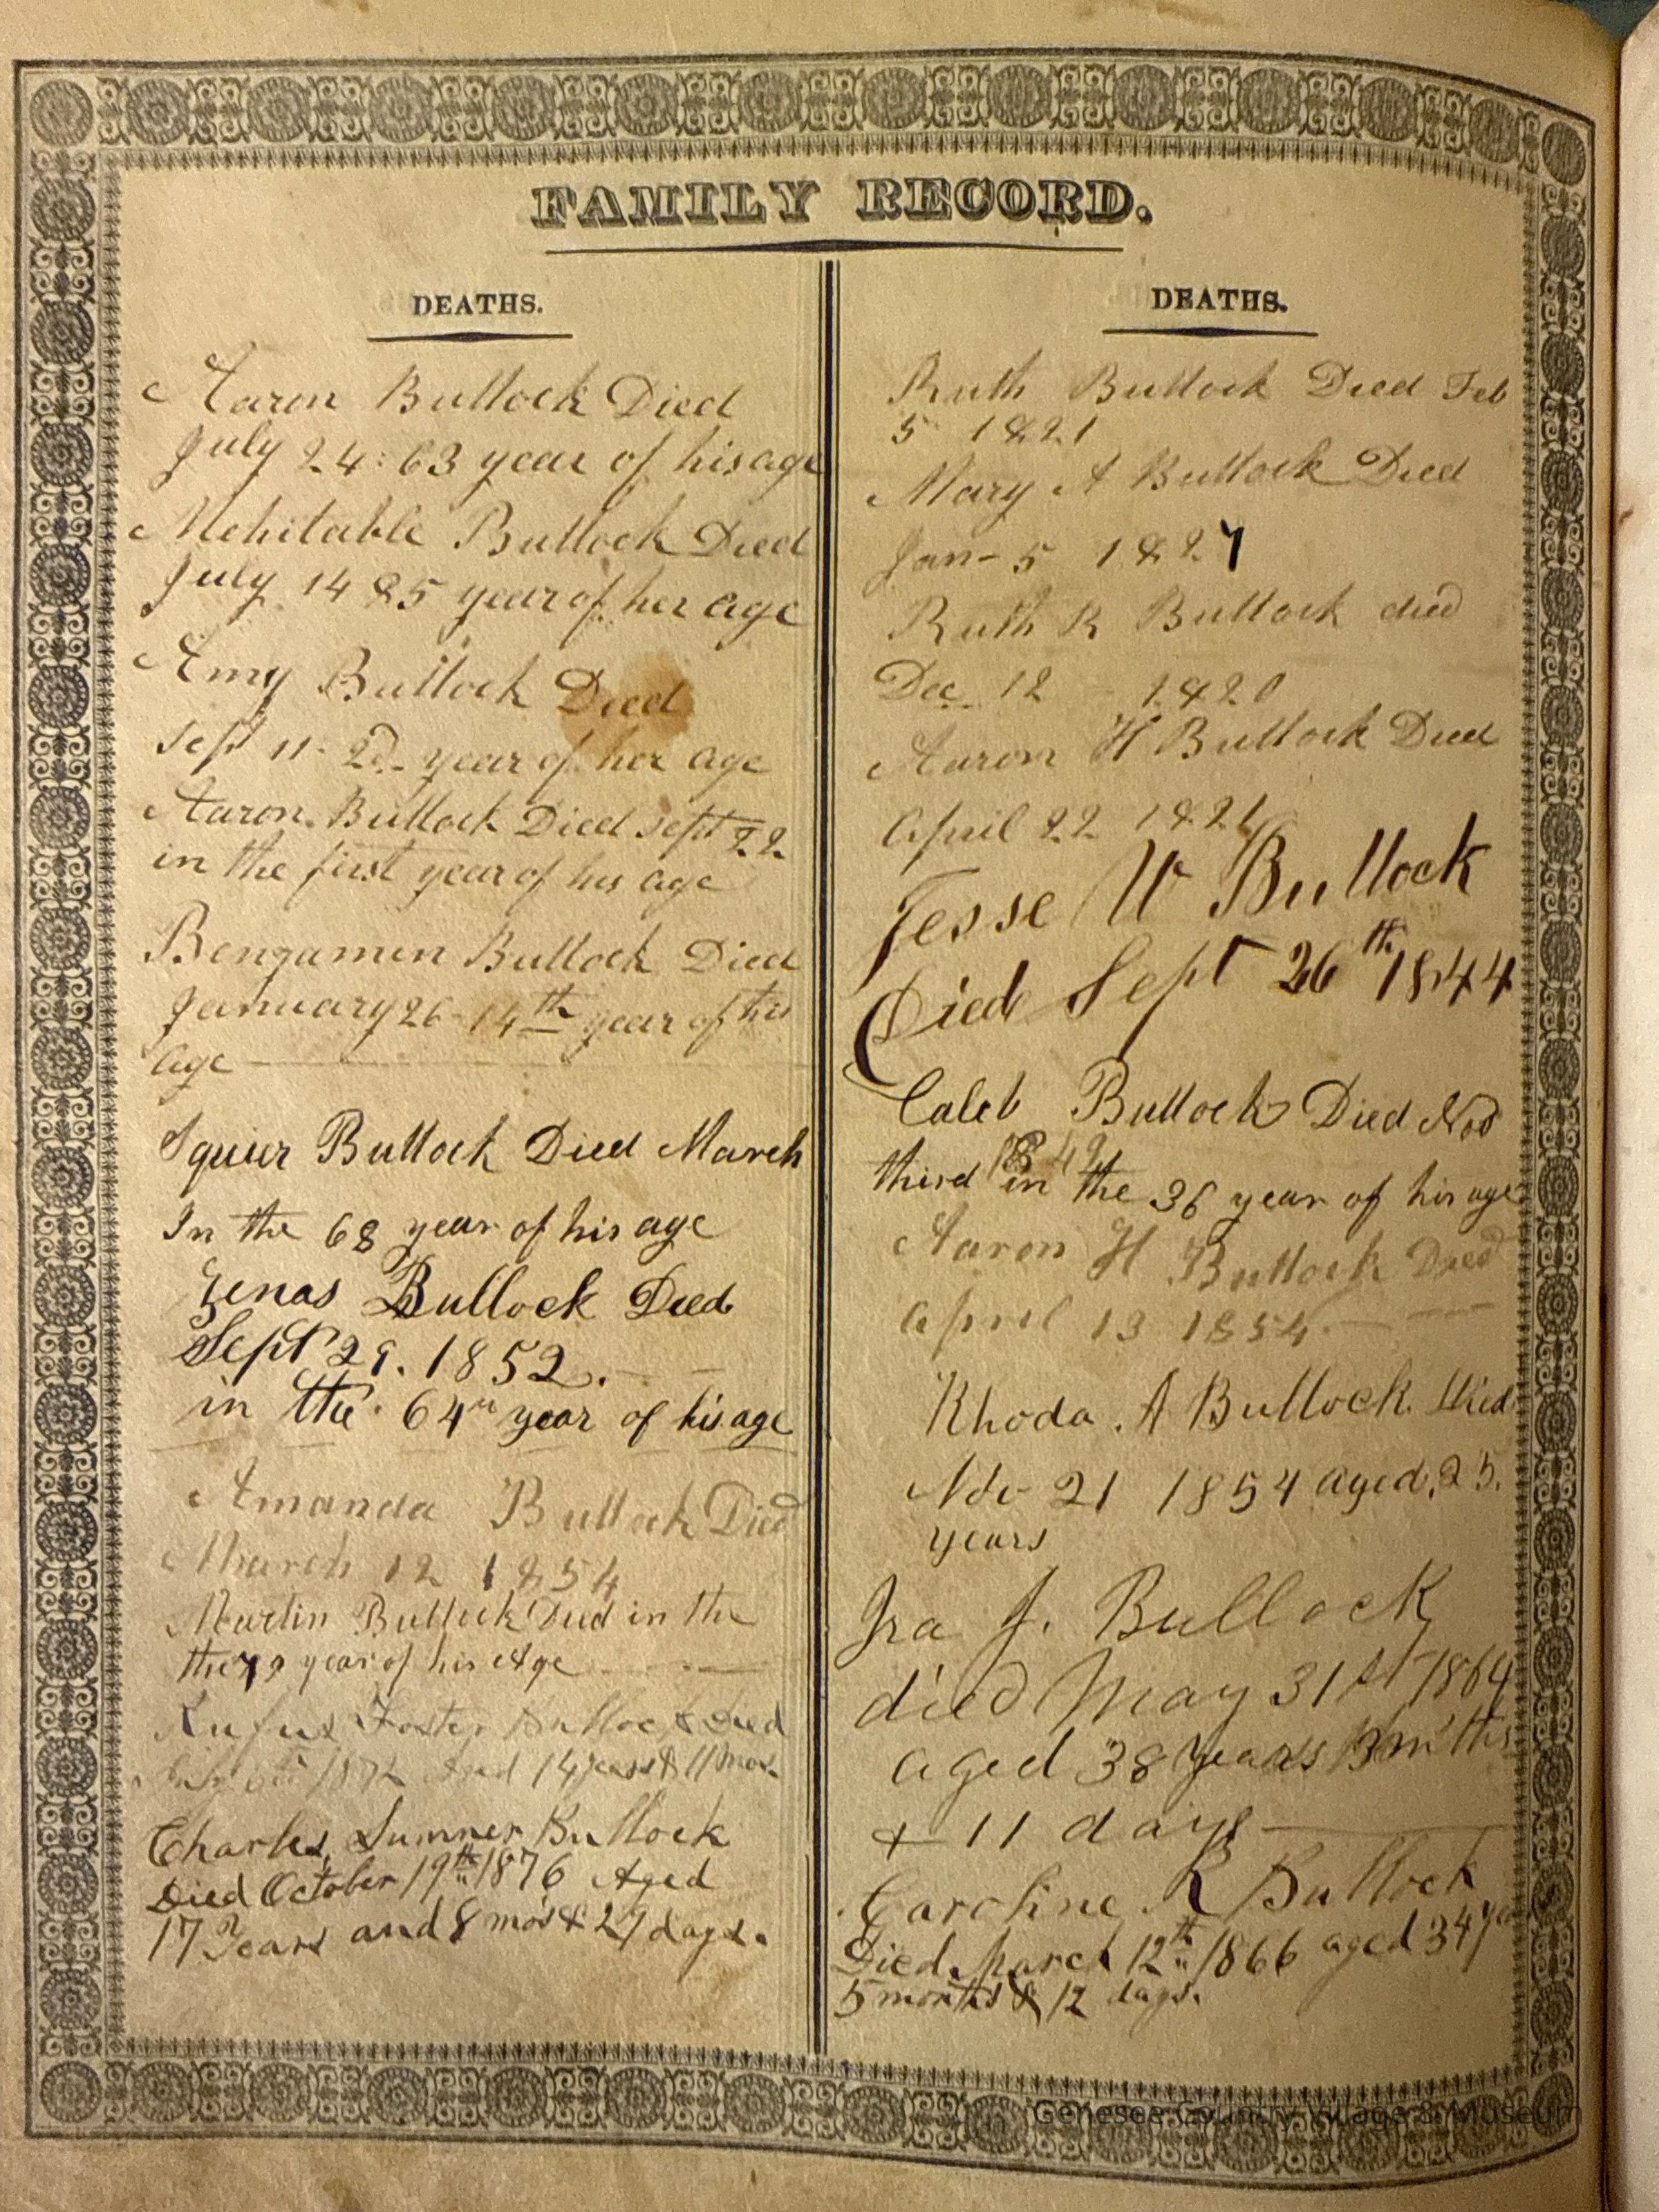 FAMILY RECORD.
DEATHS.
Aaron Bullock Died
July 24: 63 year of his age
Mehitable Bullock Died
July 14 85 year of her age
Amy Bullock Died
Sept 11- 2d- year of her age
Aaron Bullock Died Sept 22
in the first year of his age
Bengamin Bullock Died
January 26- 14th year of his
age
Squier Bullock Died March
In the 68 year of his age
Zenas Bullock Died
Sept 29. 1852.
in the 64th year of his age
Amanda Bullock Died
March 12 1854
Martin Bullock Died in the
the 79 year of his Age
Rufus Foster Bullock Died
July 6th 1872 14 years & 11 mos.
Charles Sumner Bullock
Died October 19th 1876 Aged
17 Years and 8 mo's & 29 days.
DEATHS.
Ruth Bullock Died Feb
5 1821
Mary A Bullock Died
Jan- 5 1827
Ruth R Bullock died
Dec. 12 1820
Aaron H Bullock Died
April 22 1821
Jesse W Bullock
Died Sept 26th 1844
Caleb Bullock Died Nov
1842
third in the 36 year of his age
Aaron H Bullock Died
April 13 1854
Rhoda A Bullock. Died
Nov 21 1854 aged, 25.
years
Ira J. Bullock
died May 31st 1864
aged 38 years 3 m'ths
+ 11 days
Caroline R Bullock
Died March 12th 1866 aged 34 yrs
5 months & 12 days.
Genesee Country Village & Museum